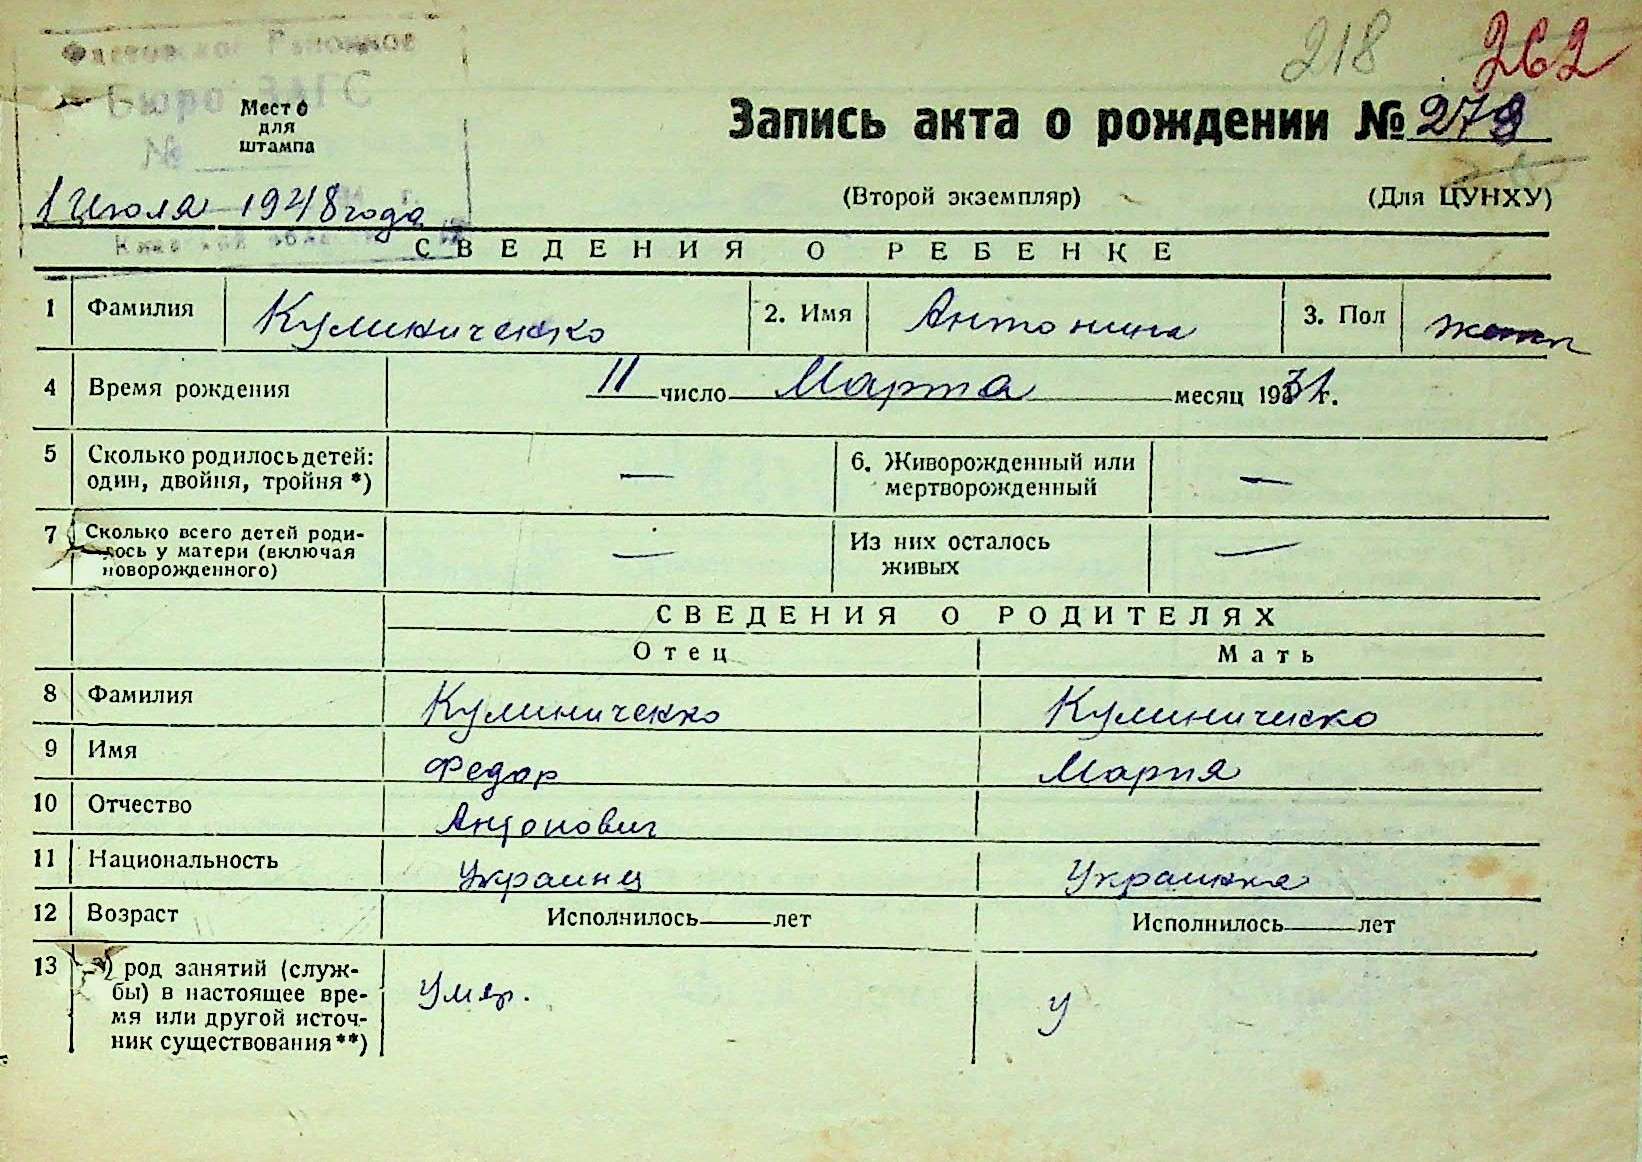 218 262
Фастовское Районное
Бюро ЗАГС
№
Место
для
штампа
Запись акта о рождении № 279
1 Июля 1948 года
(Второй экземпляр) (Для ЦУНХУ)
СВЕДЕНИЯ О РЕБЕНКЕ
1 Фамилия Кулиниченко 2. Имя Антонина 3. Пол жен
4 Время рождения 11 число Марта месяц 1931 г.
5 Сколько родилось детей: один, двойня, тройня *) — 6. Живорожденный или мертворожденный —
7 Сколько всего детей родилось у матери (включая новорожденного) — Из них осталось живых —
СВЕДЕНИЯ О РОДИТЕЛЯХ
Отец Мать
8 Фамилия Кулиниченко Кулиниченко
9 Имя Федор Мария
10 Отчество Антонович
11 Национальность Украинец Украинка
12 Возраст Исполнилось — лет Исполнилось — лет
13 род занятий (служ-
бы) в настоящее вре-
мя или другой источ-
ник существования**)
Умер. У